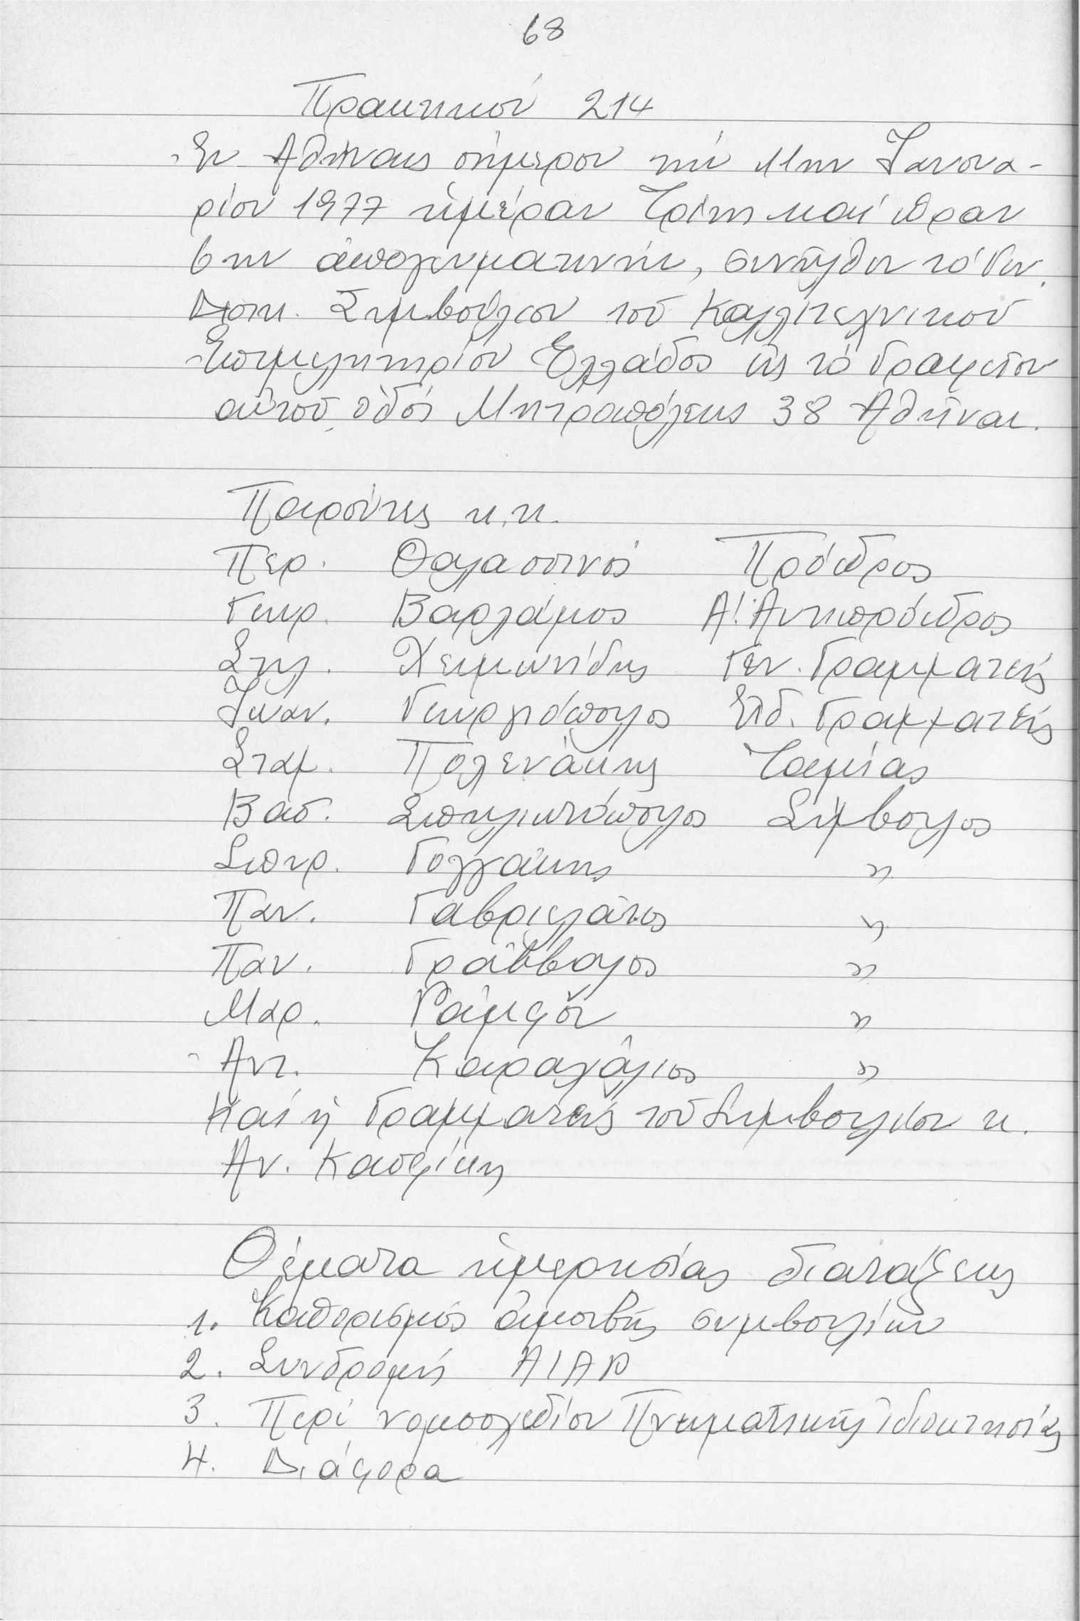 68
Πρακτικόν 214
Ἐν Ἀθήναις σήμερον τήν 11ην Ἰανουα-
ρίου 1977 ἡμέραν Τρίτη καί ὥραν
6ην ἀπογευματινήν, συνῆλθεν τό Γεν.
Διοικ. Συμβούλιον τοῦ Καλλιτεχνικοῦ
Ἐπιμελητηρίου Ἑλλάδος εἰς τό Γραφεῖον
αὐτοῦ, ὁδός Μητροπόλεως 38 Ἀθῆναι.
Παρόντες κ.κ.
Περ. Θαλασσινός Πρόεδρος
Γεωρ. Βαρλάμος Α! Ἀντιπρόεδρος
Στυλ. Χειμωνίδης Γεν. Γραμματεύς
Ἰωάν. Γεωργιόπουλος Εἰδ. Γραμματεύς
Σταμ. Πολενάκης Ταμίας
Βασ. Σπηλιωτόπουλος Σύμβουλος
Σπυρ. Γογγάκης "
Παν. Γαβριελάτος "
Παν. Γράββαλος "
Μαρ. Ράμφου "
Ἀντ. Καραχάλιος "
Καί ἡ Γραμματεύς τοῦ Συμβουλίου κ.
Ἀν. Κασφίκη
Θέματα ἡμερησίας διατάξεως
1. Καθορισμός ἀμοιβῆς συμβουλίων
2. Συνδρομή AIAP
3. Περί νομοσχεδίου Πνευματικῆς Ἰδιοκτησίας
4. Διάφορα